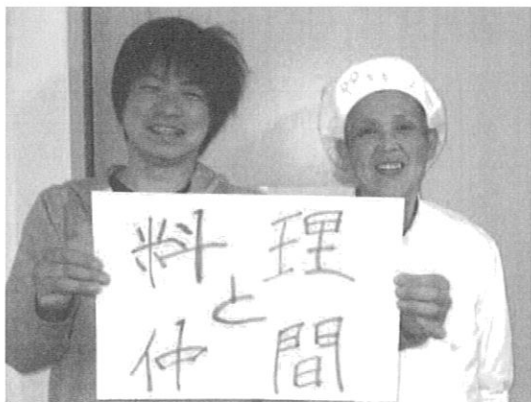 料理
と
仲間